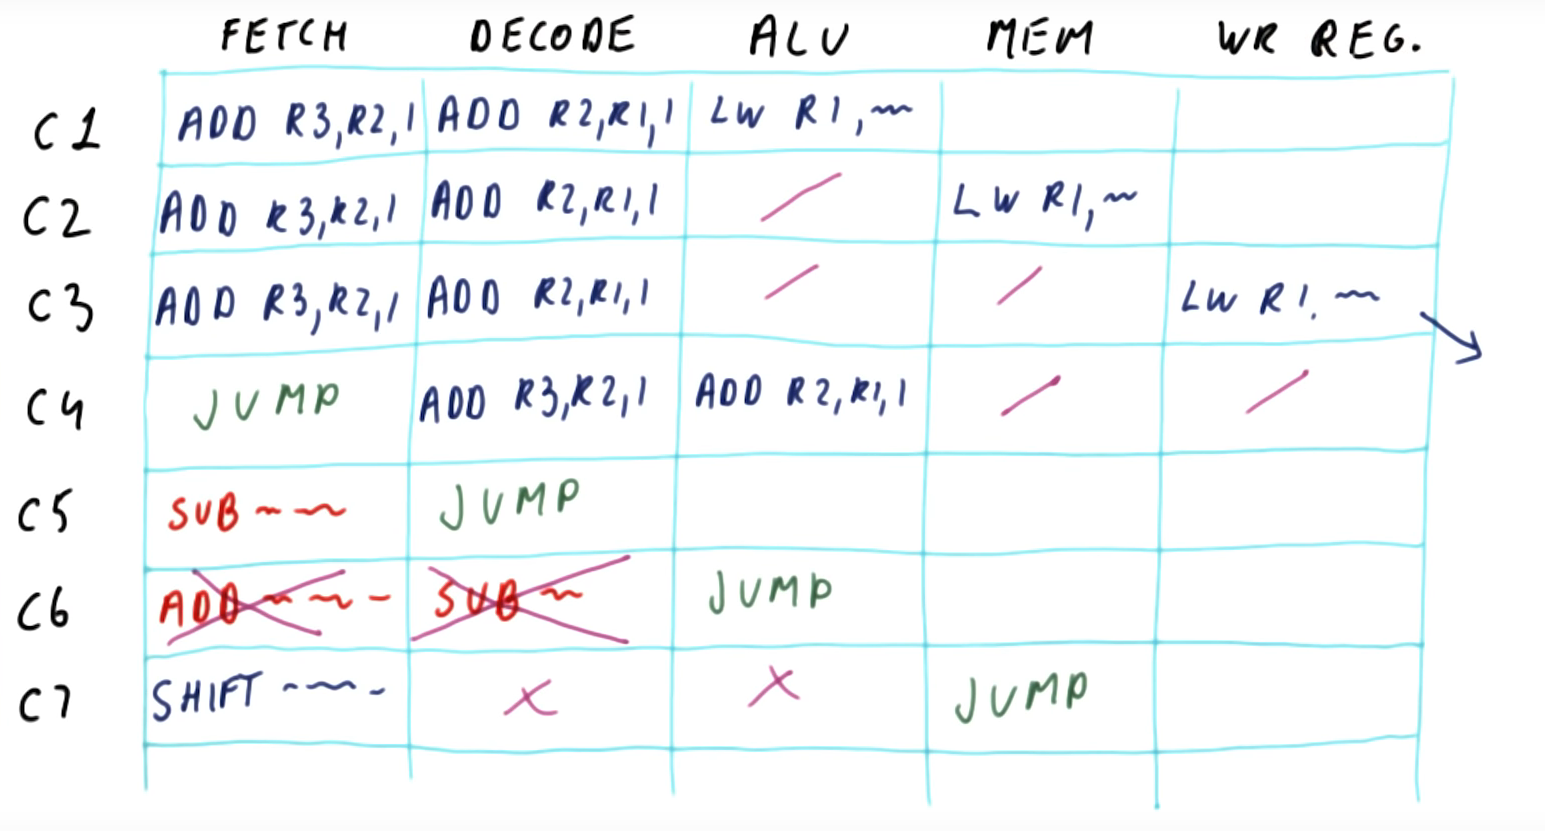 FETCH DECODE ALU MEM WR REG.
C1 ADD R3,R2,1 ADD R2,R1,1 LW R1,~
C2 ADD R3,R2,1 ADD R2,R1,1 / LW R1,~
C3 ADD R3,R2,1 ADD R2,R1,1 / / LW R1,~
C4 JUMP ADD R3,R2,1 ADD R2,R1,1 / /
C5 SUB ~ ~ JUMP
C6 ADD ~ ~ - SUB ~ JUMP
C7 SHIFT ~~~ - X X JUMP